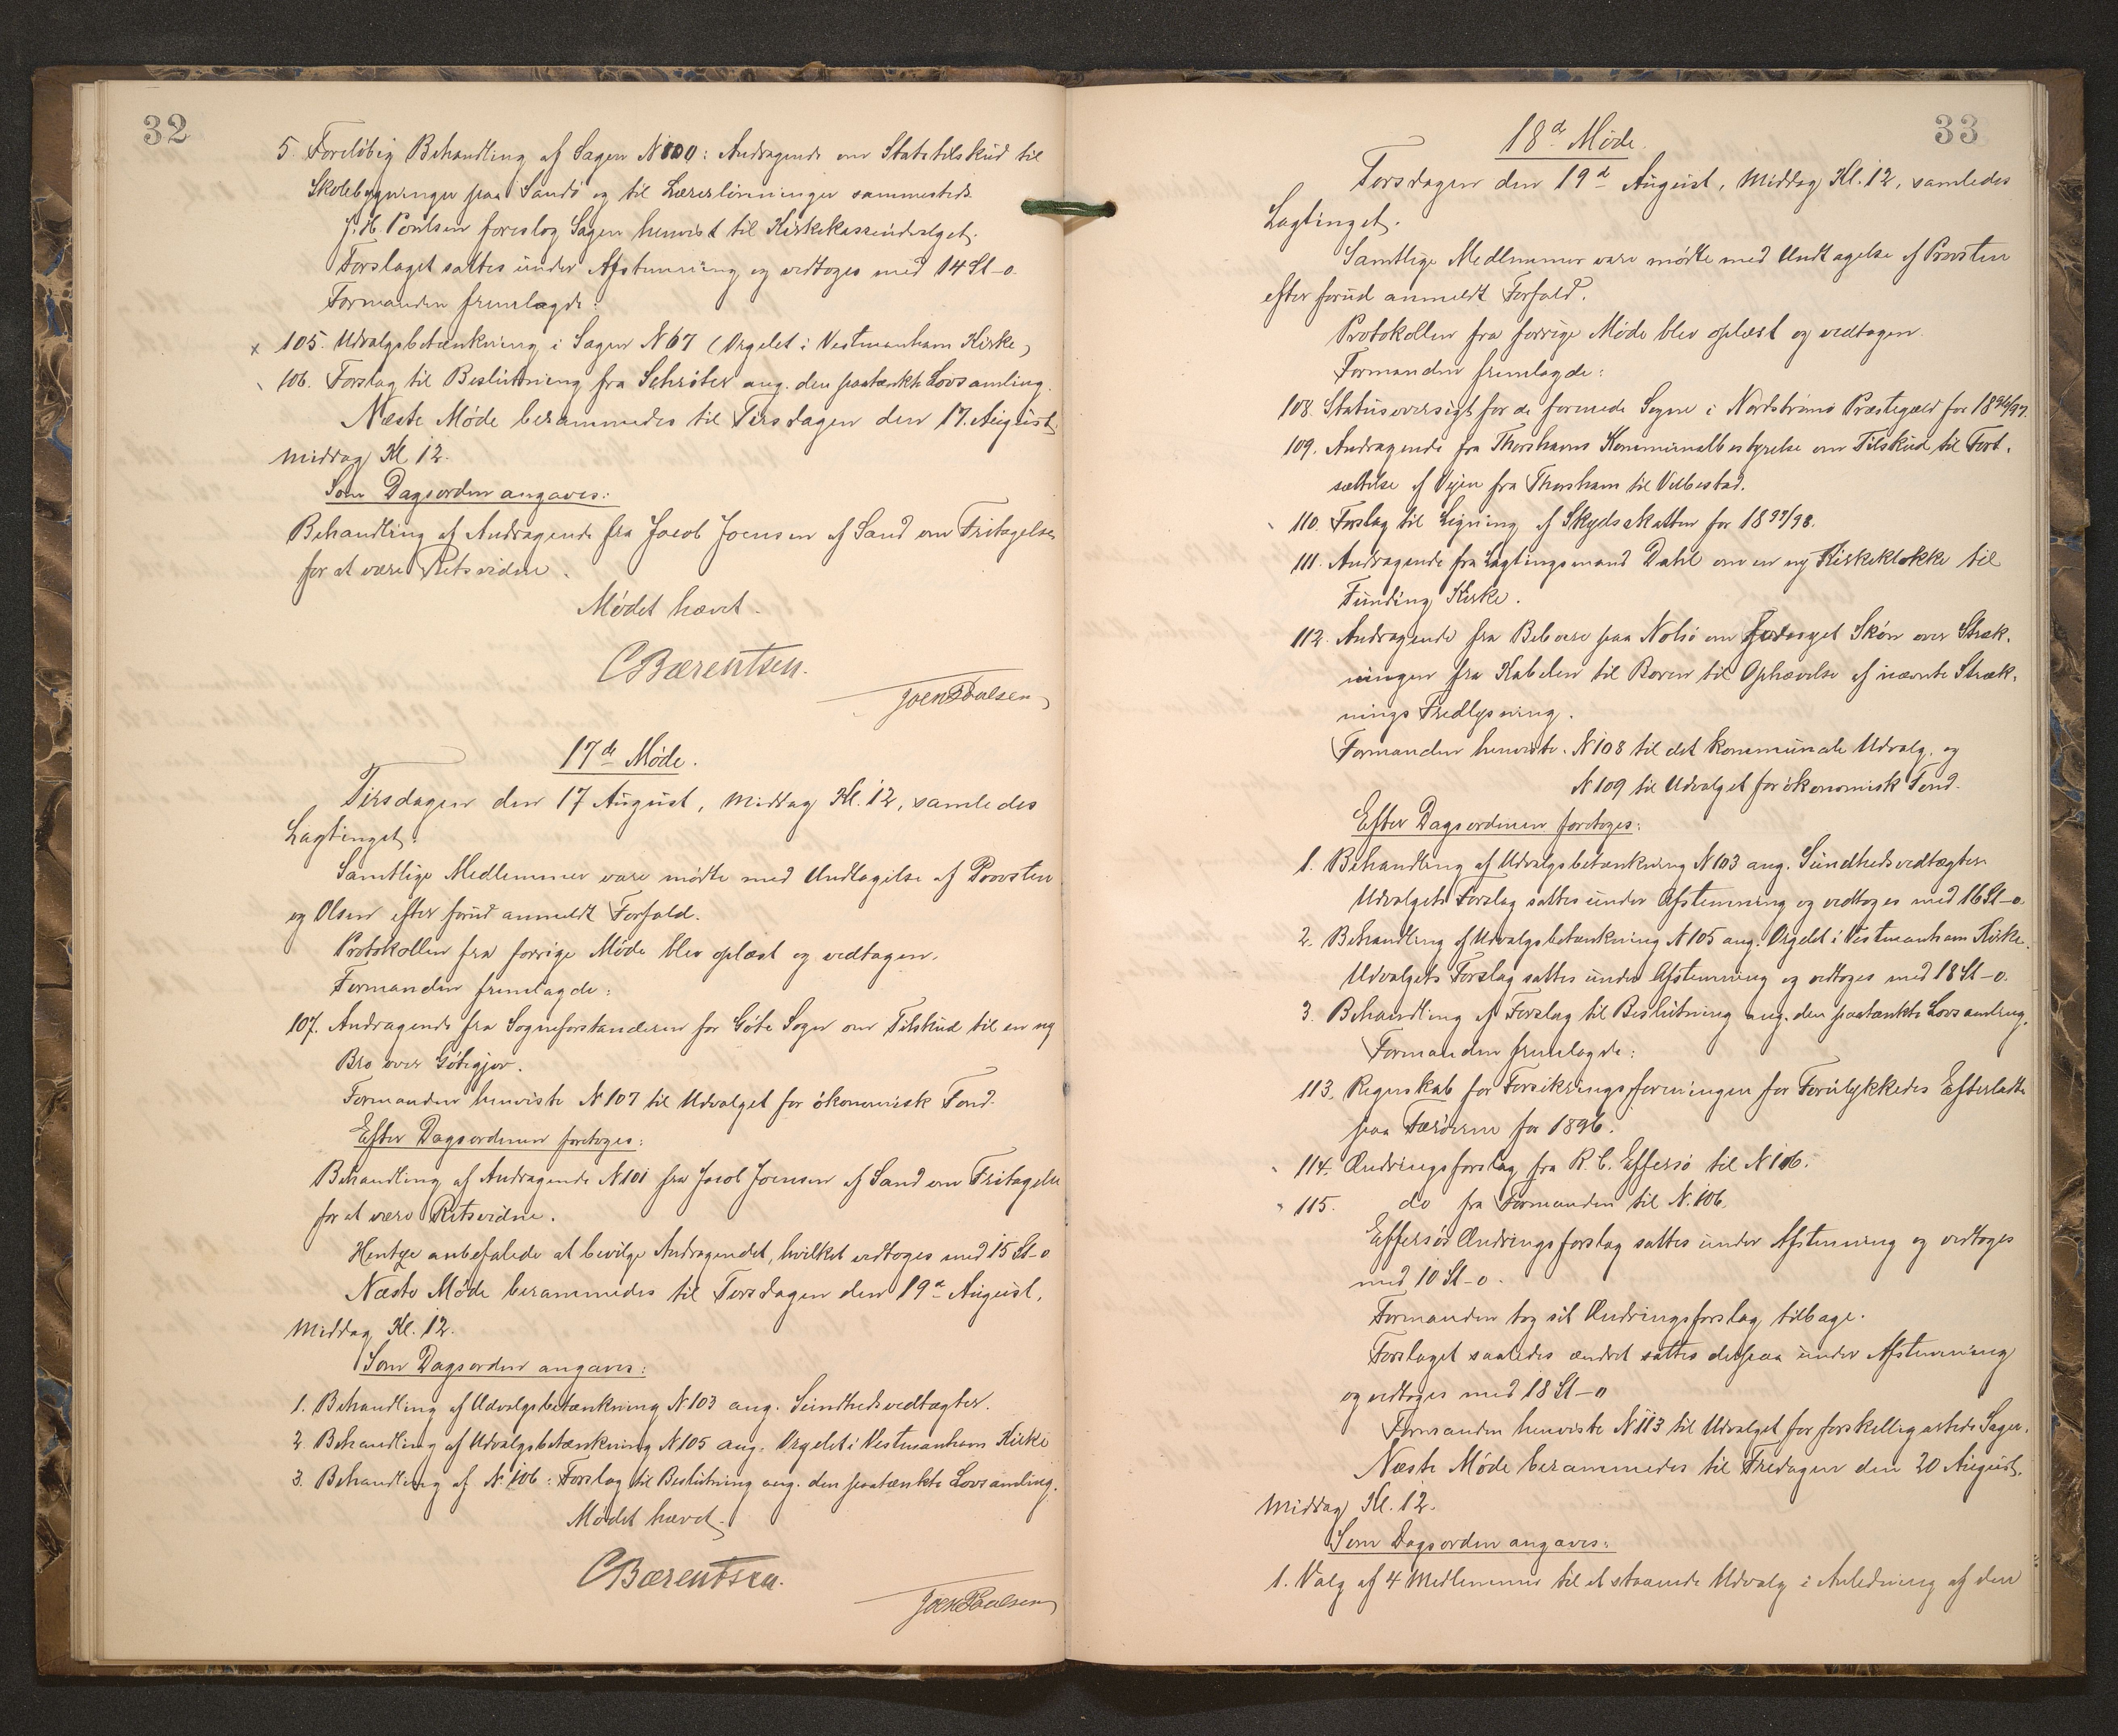 32
5. Foreløbig Behandling af Sagen N 100: Andragende om Statstilskud til
Skolebygninger paa Sandø og til Lærerlønninger sammesteds.
J. H. Poulsen foreslog Sagen henvist til Kirkekasseudvalget.
Forslaget sattes under Afstemning og vedtoges med 14 St-0.
Formanden fremlagde:
x 105. Udvalgsbetænkning i Sagen N 67 (Orgelet i Vestmanhavn Kirke)
106. Forslag til Beslutning fra Schrøter ang. den paatænkte Lovsamling.
Næste Møde berammedes til Tirsdagen den 17. August,
Middag Kl 12.
Som Dagsorden angaves:
Behandling af Andragende fra Jacob Joensen af Sand om Fritagelse
for at være Retsvidne.
Mødet hævet.
C Bærentsen.
Joen Poulsen
17de Møde.
Tirsdagen den 17 August, Middag Kl. 12, samledes
Lagtinget.
Samtlige Medlemmer vare mødte med Undtagelse af Provsten
og Olsen efter forud anmeldt Forfald.
Protokollen fra forrige Møde blev oplæst og vedtagen.
Formanden fremlagde:
107. Andragende fra Sogneforstanderen for Gøte Sogn om Tilskud til en ny
Bro over Gøtegjov.
Formanden henviste N 107 til Udvalget for økonomisk Fond.
Efter Dagsordenen foretoges:
Behandling af Andragende N 101 fra Jacob Joensen af Sand om Fritagelse
for at være Retsvidne.
Hentze anbefalede at bevilge Andragendet, hvilket vedtoges med 15 St-0
Næste Møde berammedes til Torsdagen den 19de August,
Middag Kl. 12.
Som Dagsorden angaves:
1. Behandling af Udvalgsbetænkning N 103 ang. Sundhedsvedtægter.
2. Behandling af Udvalgsbetænkning N 105 ang. Orgelet i Vestmanhavn Kirke
3. Behandling af N 106: Forslag til Beslutning ang. den paatænkte Lovsamling.
Mødet hævet.
C Bærentsen.
Joen Poulsen
33
18de Møde.
Torsdagen den 19de August, Middag Kl. 12, samledes
Lagtinget.
Samtlige Medlemmer vare mødte med Undtagelse af Provsten
efter forud anmeldt Forfald.
Protokollen fra forrige Møde blev oplæst og vedtagen.
Formanden fremlagde:
108. Statusoversigt for de forenede Sogne i Nordstrømø Præstegæld for 1896/97.
109. Andragende fra Thorshavns Kommunalbestyrelse om Tilskud til Fort-
sættelse af Vejen fra Thorshavn til Velbestad.
110. Forslag til Ligning af Skydsskatten for 1897/98.
111. Andragende fra Lagtingsmand Dahl om en ny Kirkeklokke til
Funding Kirke.
112. Andragende fra Beboere paa Nolsø om Skøn over Stræk-
ningen fra Kabelen til Boren til Ophævelse af nævnte Stræk-
nings Fredlysning.
Formanden henviste: N 108 til det kommunale Udvalg, og
N 109 til Udvalget for økonomisk Fond.
Efter Dagsordenen foretoges:
1. Behandling af Udvalgsbetænkning N 103 ang. Sundhedsvedtægter.
Udvalgets Forslag sattes under Afstemning og vedtoges med 16 St-0.
2. Behandling af Udvalgsbetænkning N 105 ang. Orgelet i Vestmanhavn Kirke.
Udvalgets Forslag sattes under Afstemning og vedtoges med 18 St-0.
3. Behandling af Forslag til Beslutning ang. den paatænkte Lovsamling.
Formanden fremlagde:
113. Regnskab for Forsikringsforeningen for Forulykkedes Efterladte
paa Færøerne for 1896.
114. Ændringsforslag fra R. C. Effersø til N 106.
115. do fra Formanden til N. 106.
Effersøs Ændringsforslag sattes under Afstemning og vedtoges
med 10 St-0.
Formanden tog sit Ændringsforslag tilbage.
Forslaget saaledes ændret sattes derpaa under Afstemning
og vedtoges med 18 St-0
Formanden henviste N 113 til Udvalget for forskelligartede Sager.
Næste Møde berammedes til Fredagen den 20 August,
Middag Kl. 12.
Som Dagsorden angaves:
1. Valg af 4 Medlemmer til et staaende Udvalg i Anledning af den